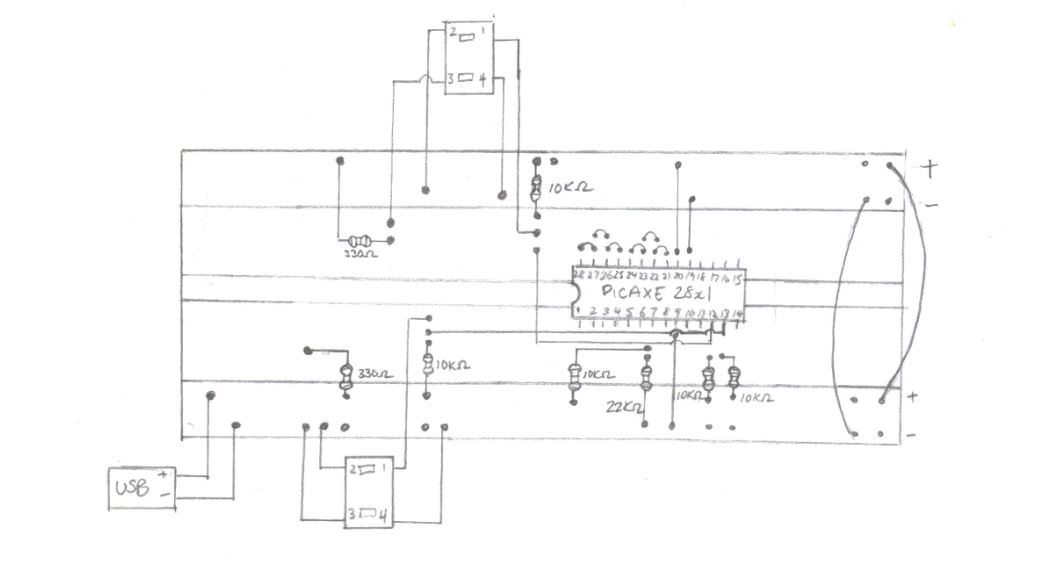 2 1
3 4
+
10KΩ
-
330Ω
28 27 26 25 24 23 22 21 20 19 18 17 16 15
PICAXE 28x1
1 2 3 4 5 6 7 8 9 10 11 12 13 14
330Ω
10KΩ
10KΩ
22KΩ
10KΩ
10KΩ
+
-
USB + -
2 1
3 4